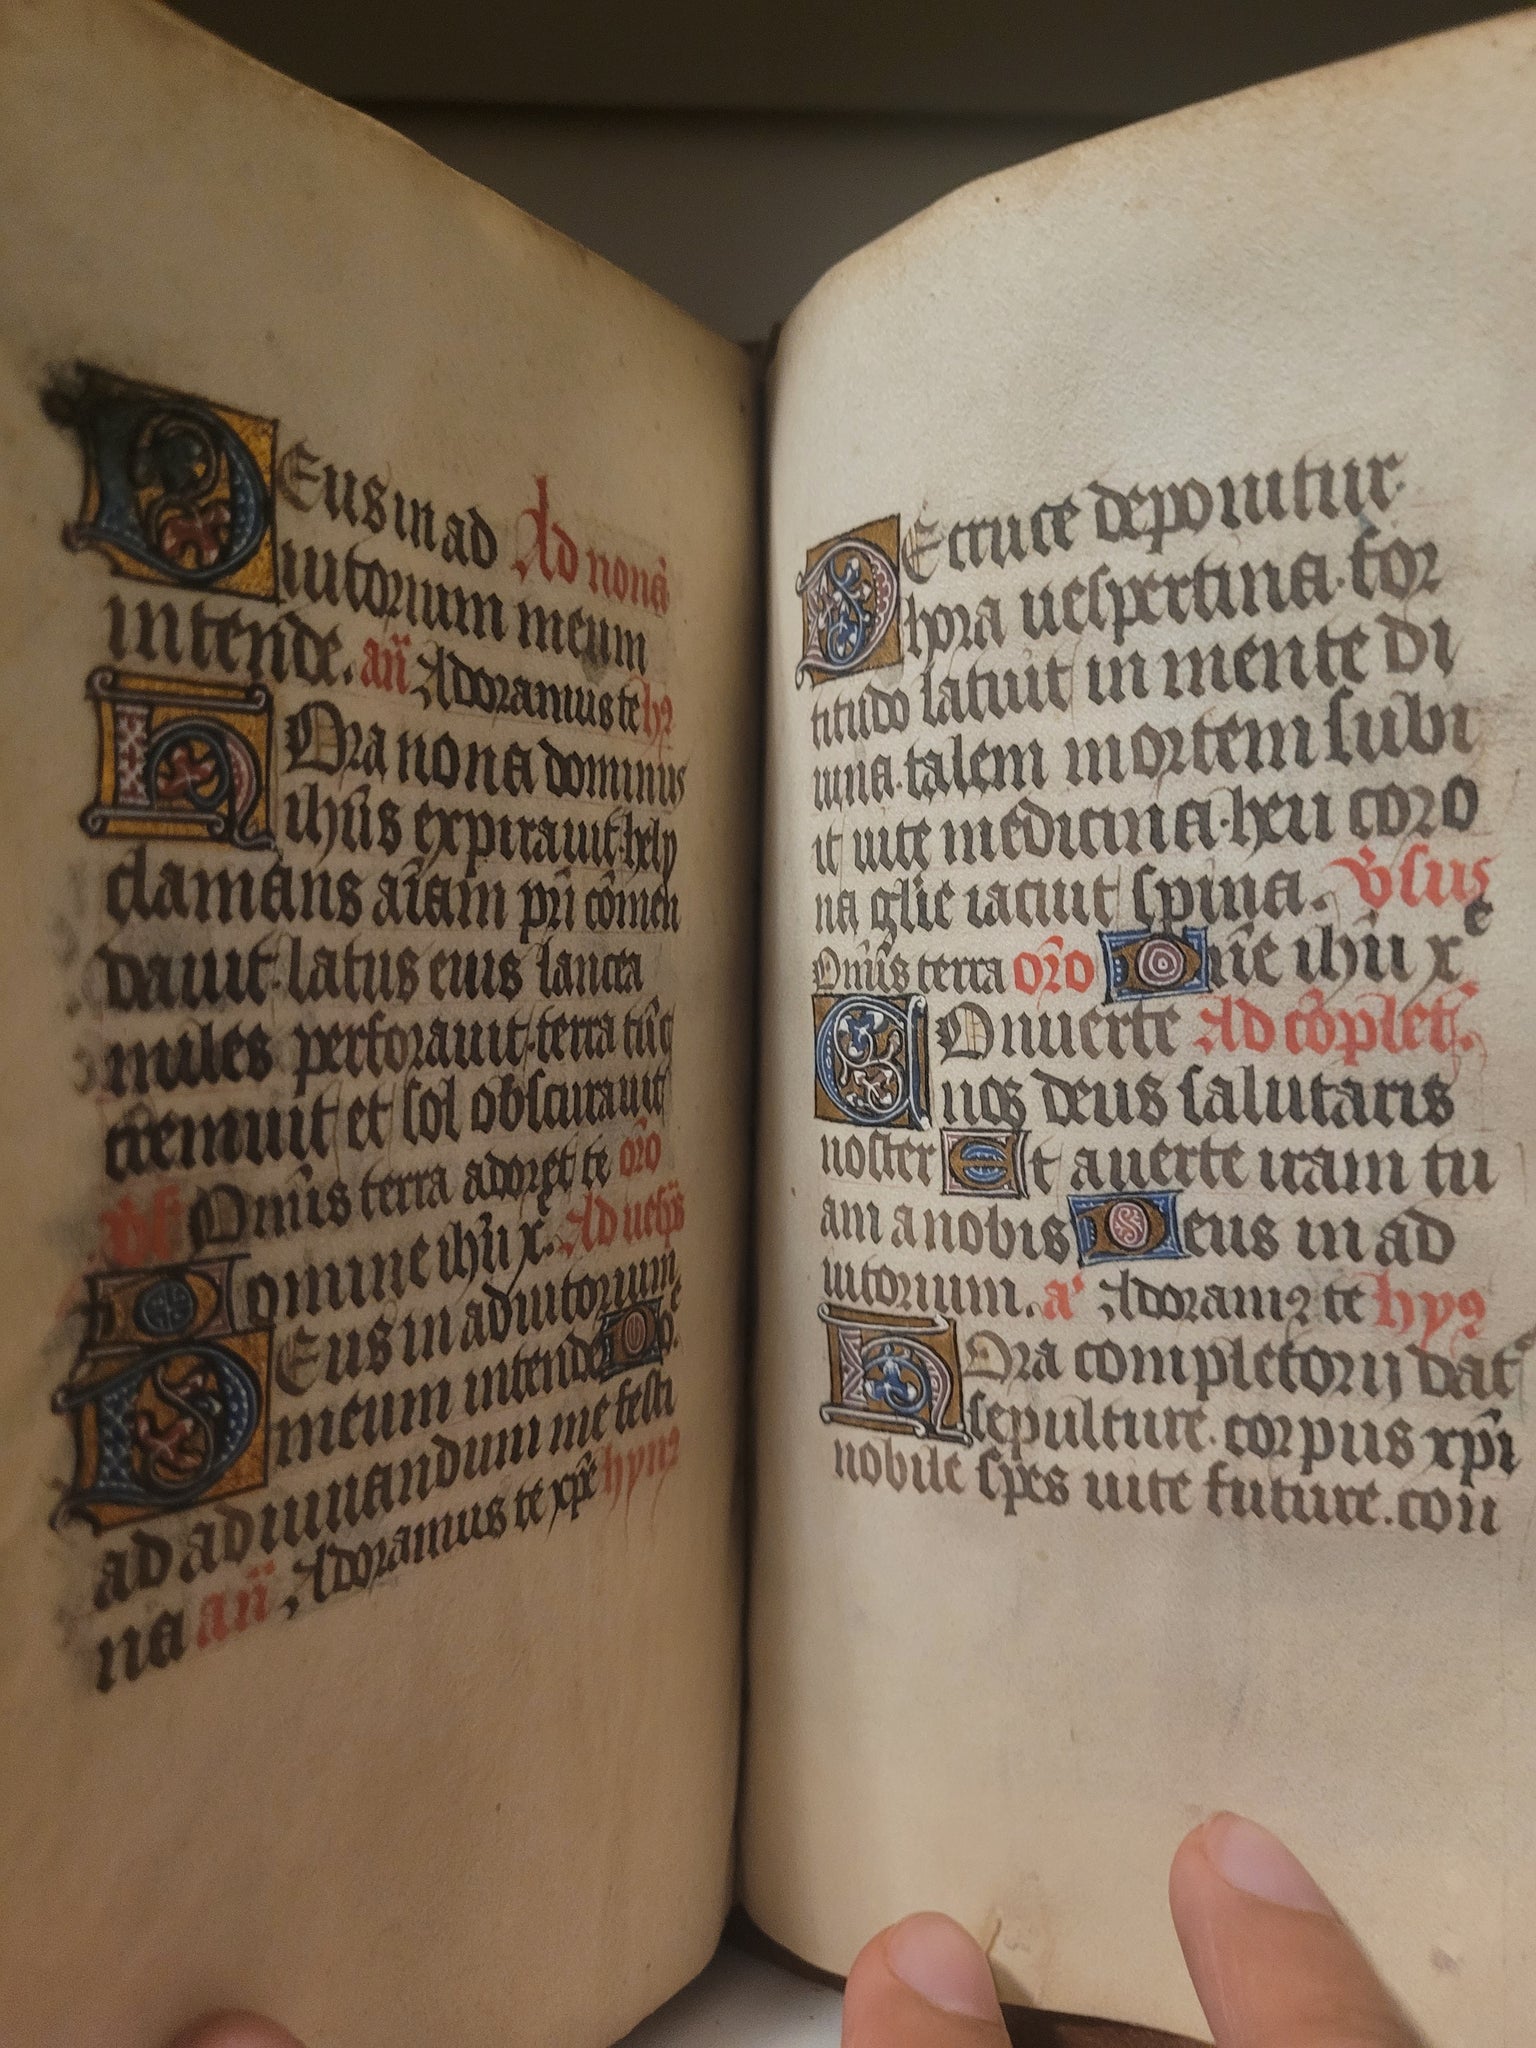 DEus in ad Ad nonã
iutorium meum
intende. añ Adoramus te hỹ
HOra nona dominus
ihũs expirauit. hely
clamans aĩam pri cõmen
dauit. latus eius lancea
miles perforauit. terra tũc
tremuit et sol obscurauit
Omĩs terra adoret te orõ
Domine ihũ x. Ad uesp̃s
DEus in adiutorium
meum intende D
ad adiuuandum me festi
na añ Adoramus te xp̃e hyn
DE cruce deponitur
hora uespertina. for
titudo latuit in mente di
uina. talem mortem subi
it uite medicina. heu coro
na glie iacuit spina. v̾sus
Omĩs terra orõ Dñe ihũ xe
COnuerte Ad cõplet.
nos deus salutaris
noster Et auerte iram tu
am a nobis Deus in ad
iutorium. a' Adoram9 te hy9
HOra completorij dat'
sepulture. corpus xp̃i
nobile spes uite future. con